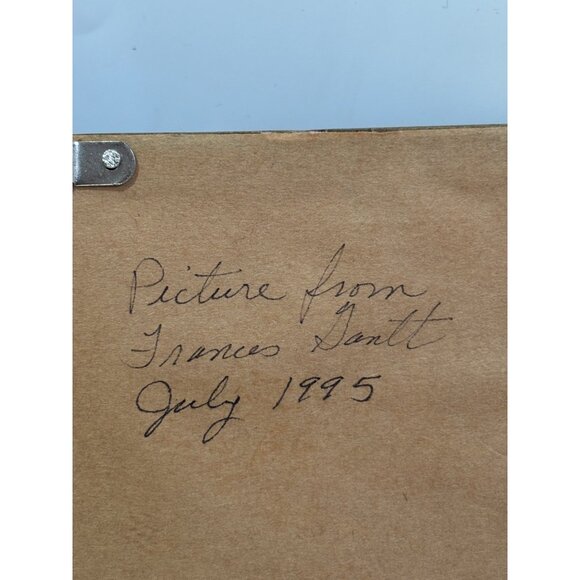 Picture from
Frances Gantt
July 1995